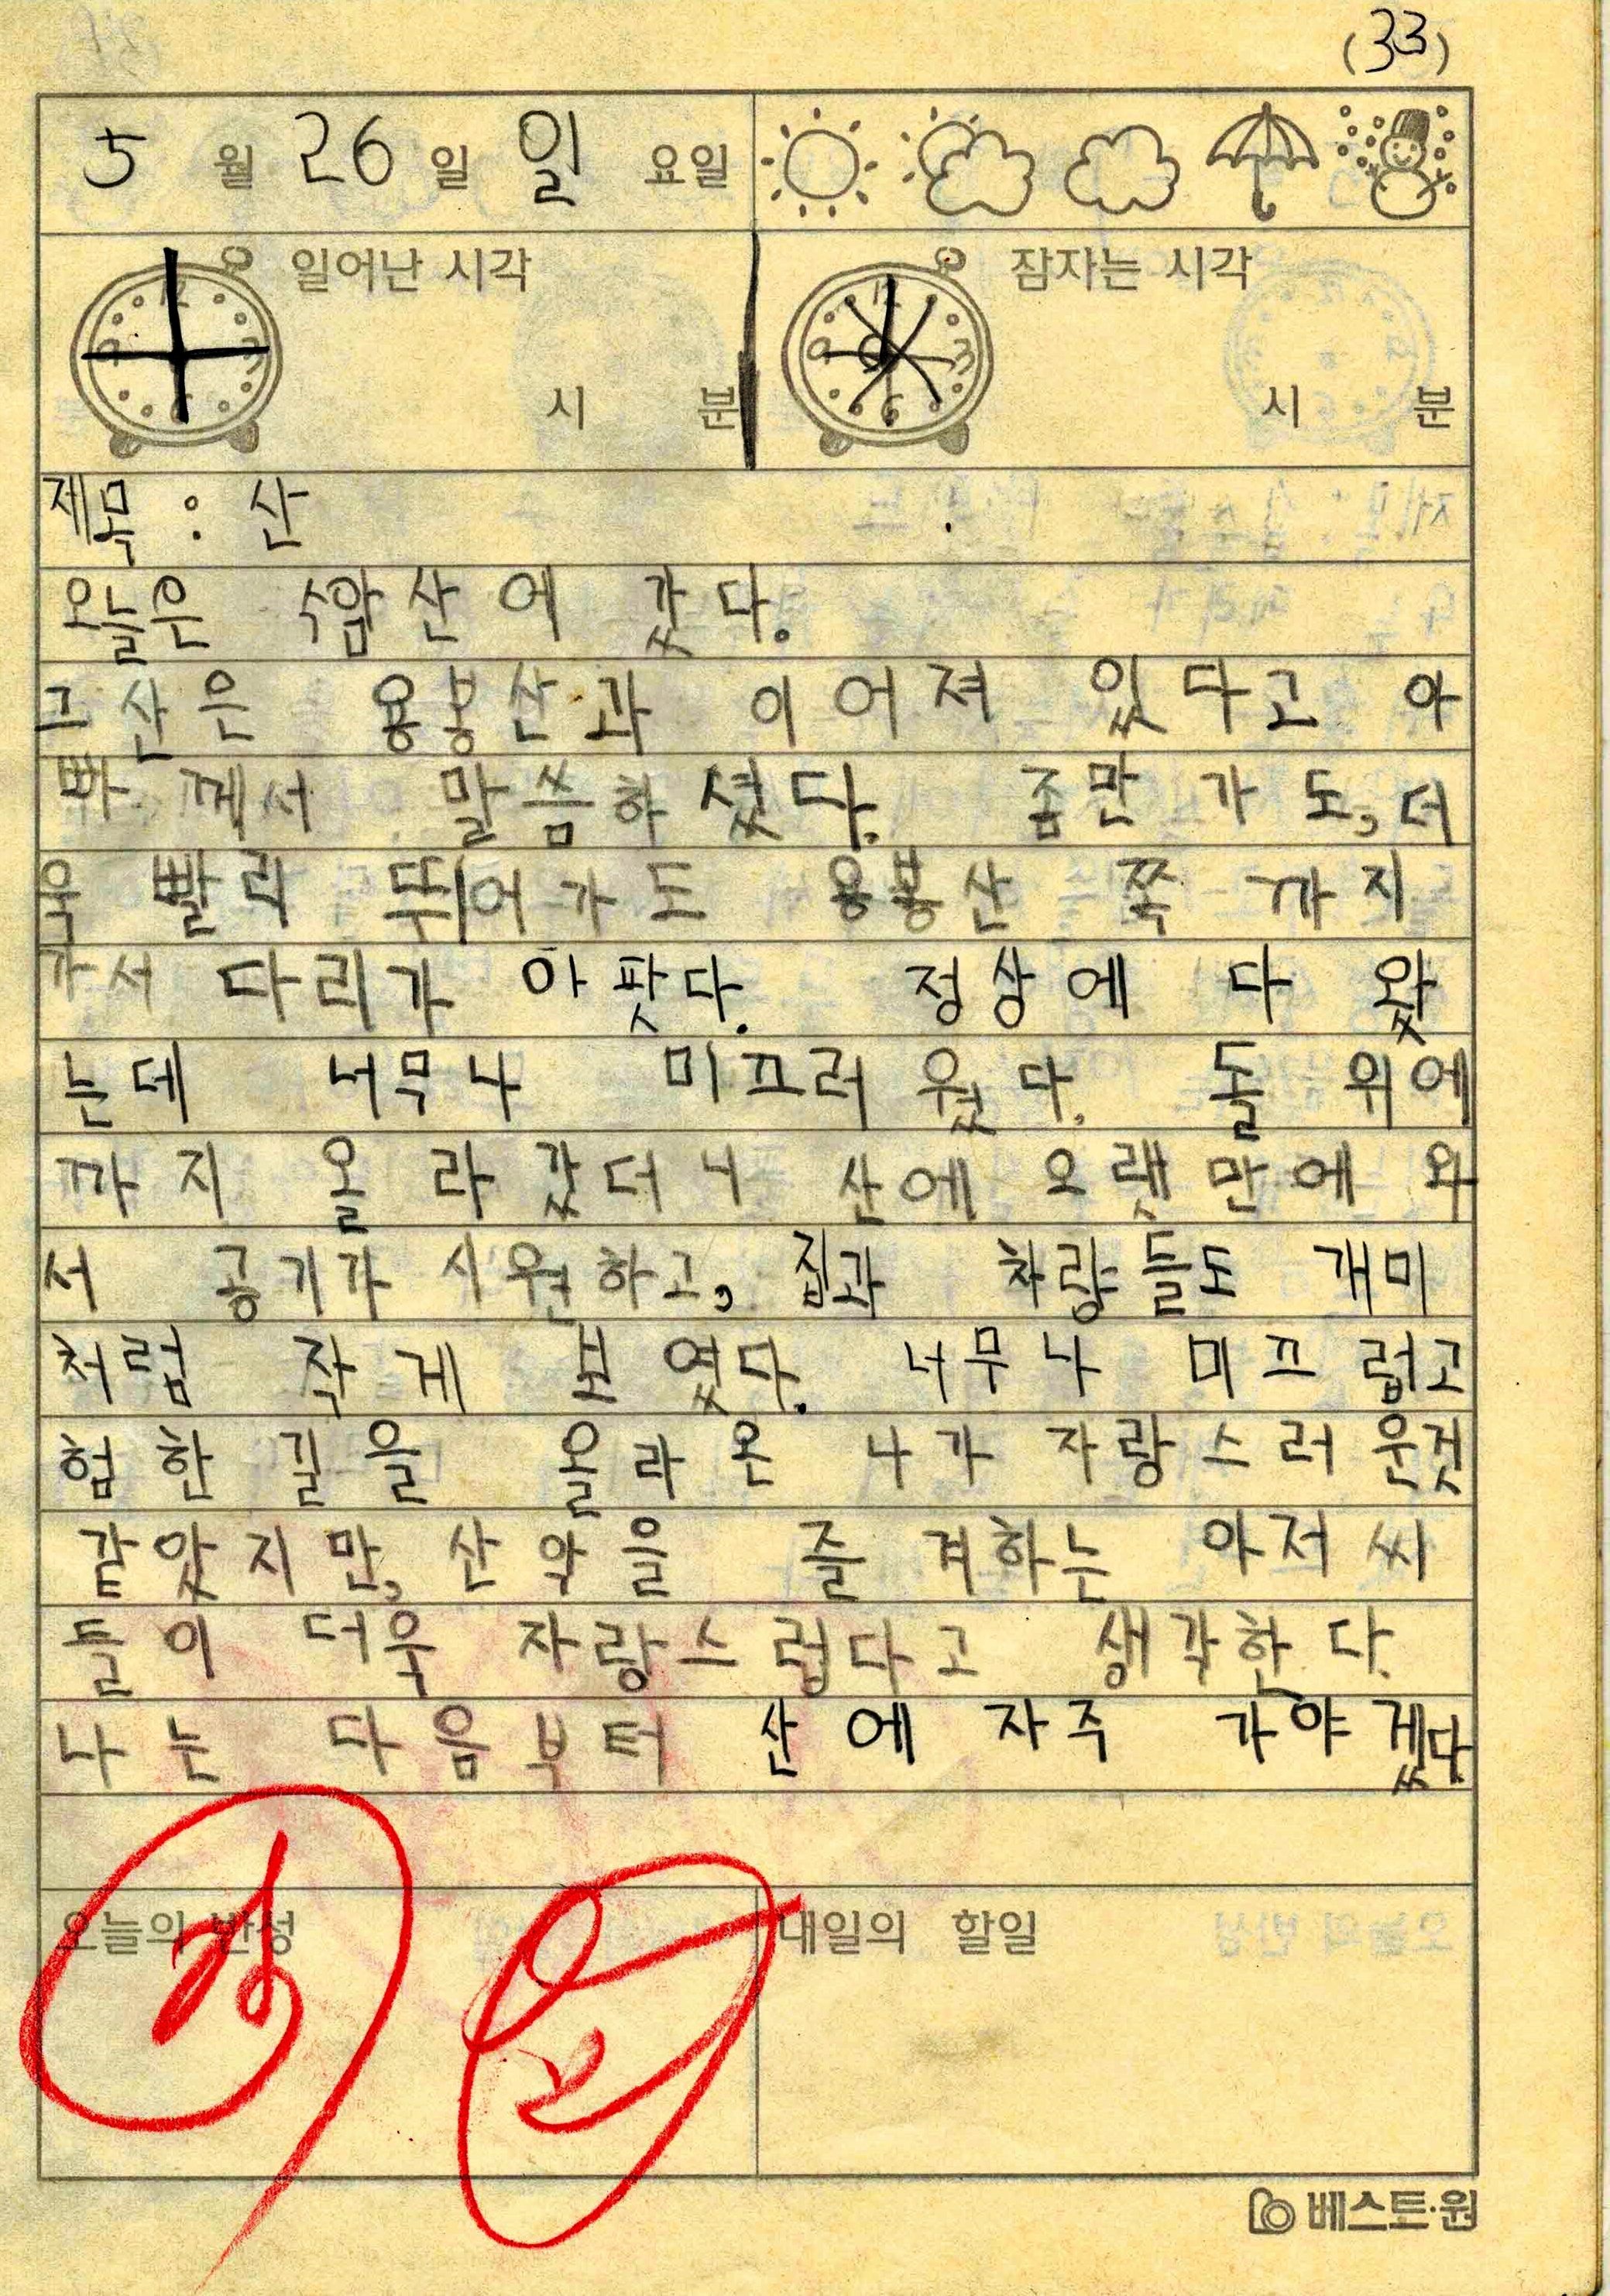 (33)
5 월 26 일 일 요일
일어난 시각
시 분
잠자는 시각
시 분
제목 : 산
오늘은 수암산에 갔다.
그 산은 용봉산과 이어져 있다고 아
빠께서 말씀하셨다. 좀만 가도, 더
욱 빨리 뛰어가도 용봉산 쪽 까지
가서 다리가 아팟다. 정상에 다 왔
는데 너무나 미끄러웠다. 돌 위에
까지 올라갔더니 산에 오랫만에 와
서 공기가 시원하고, 집과 차량들도 개미
처럼 작게 보였다. 너무나 미끄럽고
험한 길을 올라온 나가 자랑스러운것
같앗지만, 산악을 즐겨하는 아저씨
들이 더욱 자랑스럽다고 생각한다.
나는 다음부터 산에 자주 가야겠다
오늘의 반성
내일의 할일
베스트·원